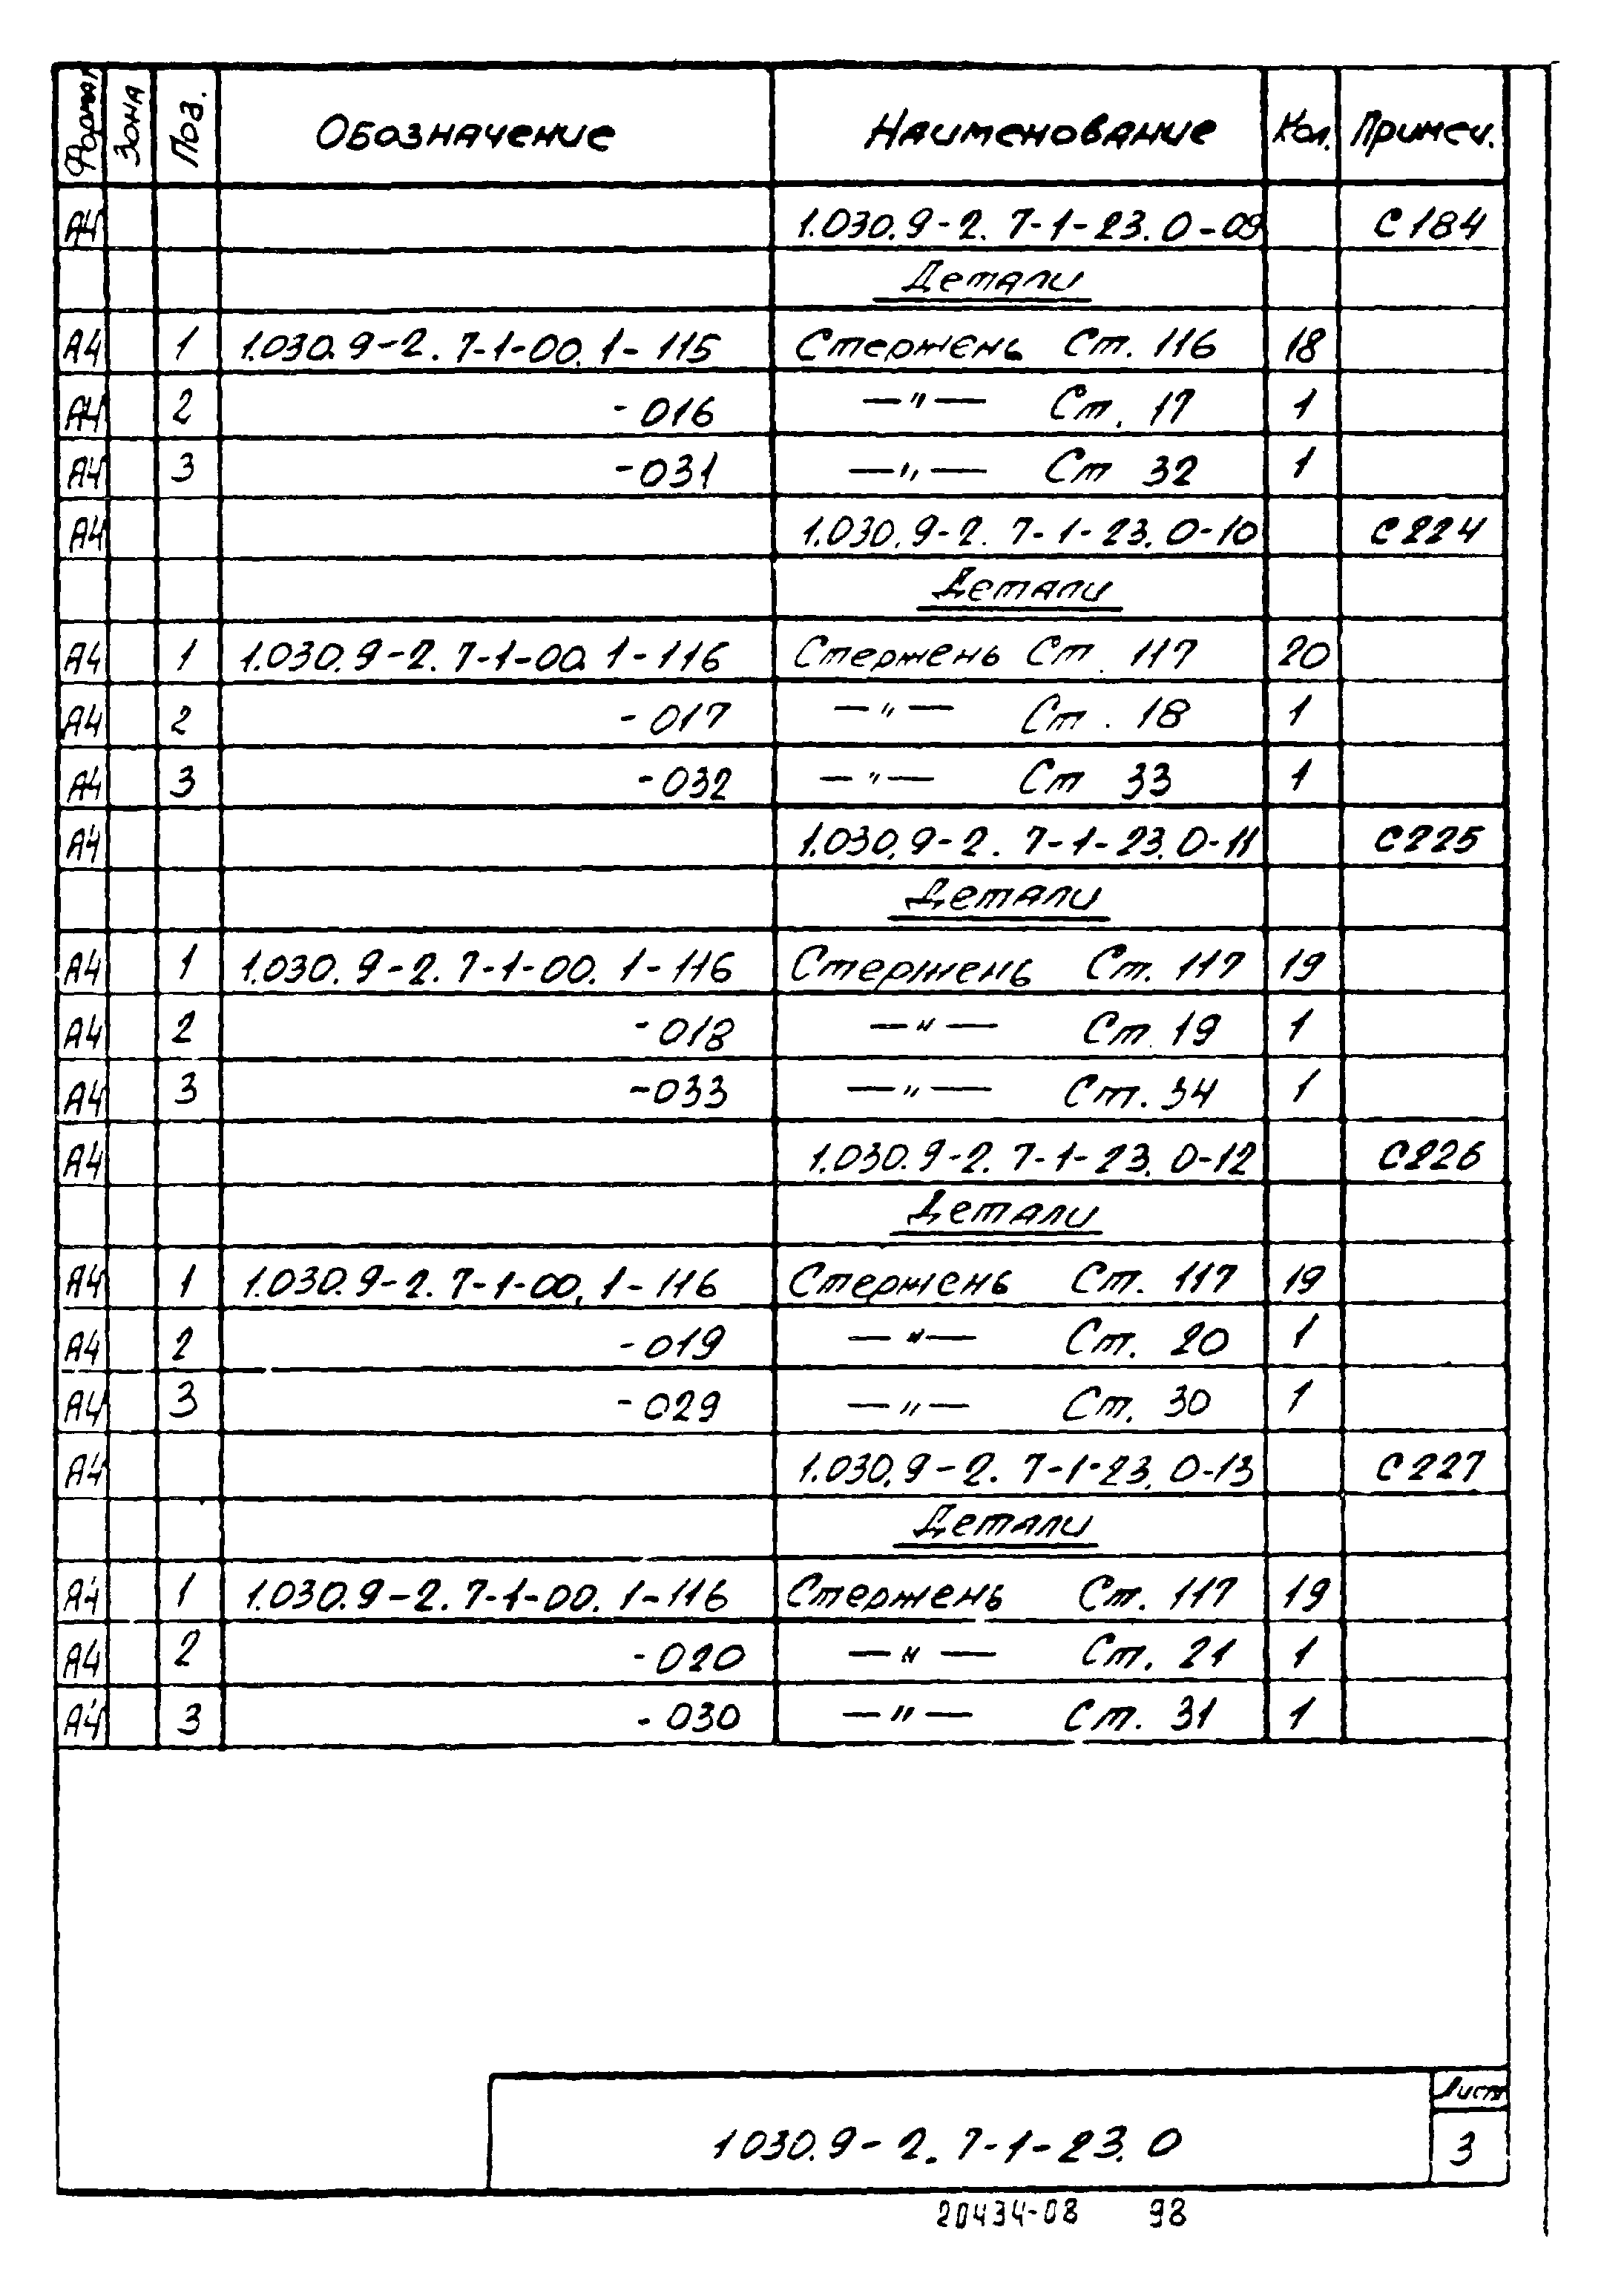 Формат Зона Поз. Обозначение Наименование Кол. Примеч.
А4 1.030.9-2.7-1-23.0-09 С184
Детали
А4 1 1.030.9-2.7-1-00.1-115 Стержень Ст. 116 18
А4 2 -016 —"— Ст. 17 1
А4 3 -031 —"— Ст 32 1
А4 1.030.9-2.7-1-23.0-10 С224
Детали
А4 1 1.030.9-2.7-1-00.1-116 Стержень Ст. 117 20
А4 2 -017 —"— Ст. 18 1
А4 3 -032 —"— Ст 33 1
А4 1.030.9-2.7-1-23.0-11 С225
Детали
А4 1 1.030.9-2.7-1-00.1-116 Стержень Ст. 117 19
А4 2 -018 —"— Ст. 19 1
А4 3 -033 —"— Ст. 34 1
А4 1.030.9-2.7-1-23.0-12 С226
Детали
А4 1 1.030.9-2.7-1-00.1-116 Стержень Ст. 117 19
А4 2 -019 —"— Ст. 20 1
А4 3 -029 —"— Ст. 30 1
А4 1.030.9-2.7-1-23.0-13 С227
Детали
А4 1 1.030.9-2.7-1-00.1-116 Стержень Ст. 117 19
А4 2 -020 —"— Ст. 21 1
А4 3 -030 —"— Ст. 31 1
Лист
1 030.9-2.7-1-23.0 3
20434-08 98